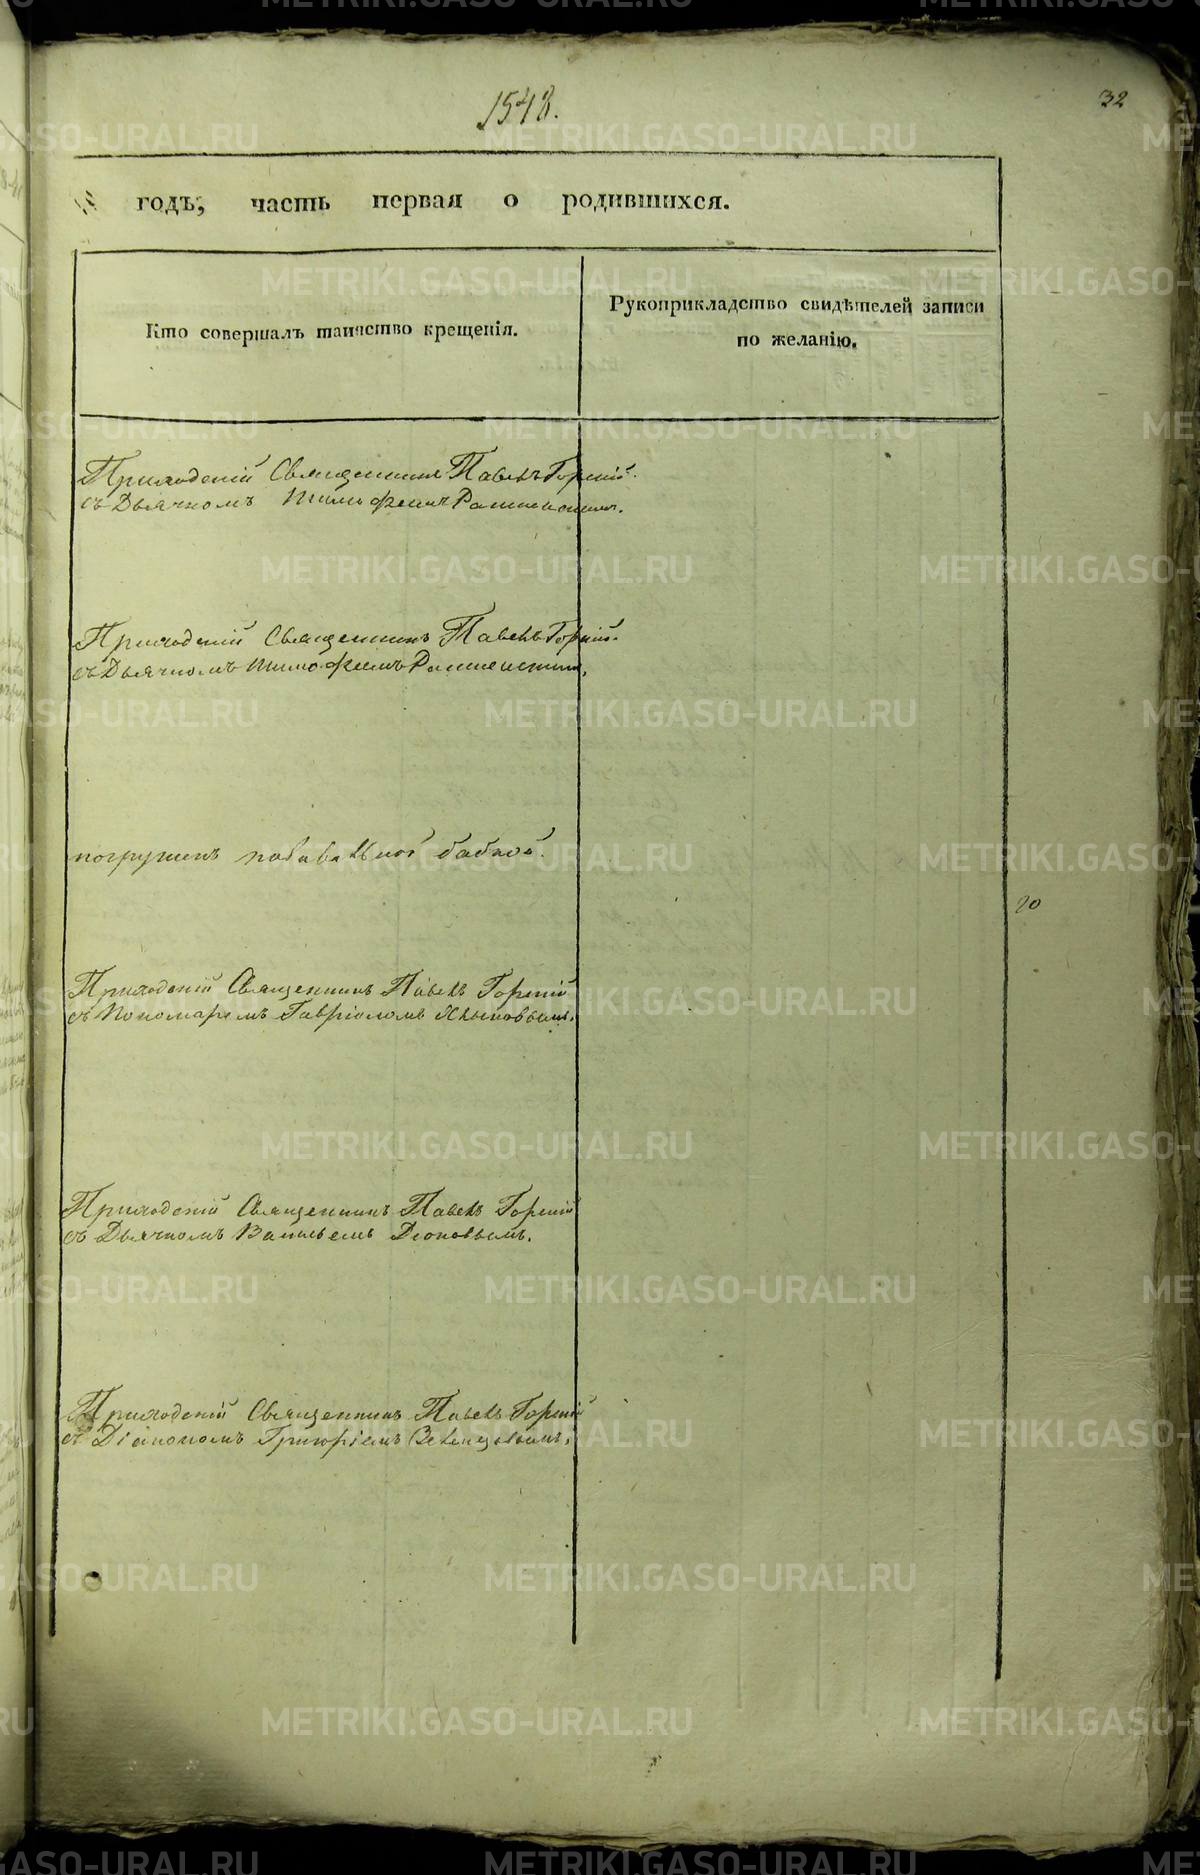 1548.
32
годъ, часть первая о родившихся.
Кто совершалъ таинство крещенія.
Рукоприкладство свидѣтелей записи
по желанію.
Приходскій Священникъ Павелъ Горный
съ Дьячкомъ Тимофеемъ
Приходскій Священникъ Павелъ Горный
съ Дьячкомъ Тимофеемъ
погруженъ повивальной бабкой.
20
Приходскій Священникъ Павелъ Горный
съ Пономаремъ Гавріиломъ
Приходскій Священникъ Павелъ Горный
съ Дьячкомъ Васильемъ
Приходскій Священникъ Павелъ Горный
съ Діакономъ Григоріемъ
METRIKI.GASO-URAL.RU